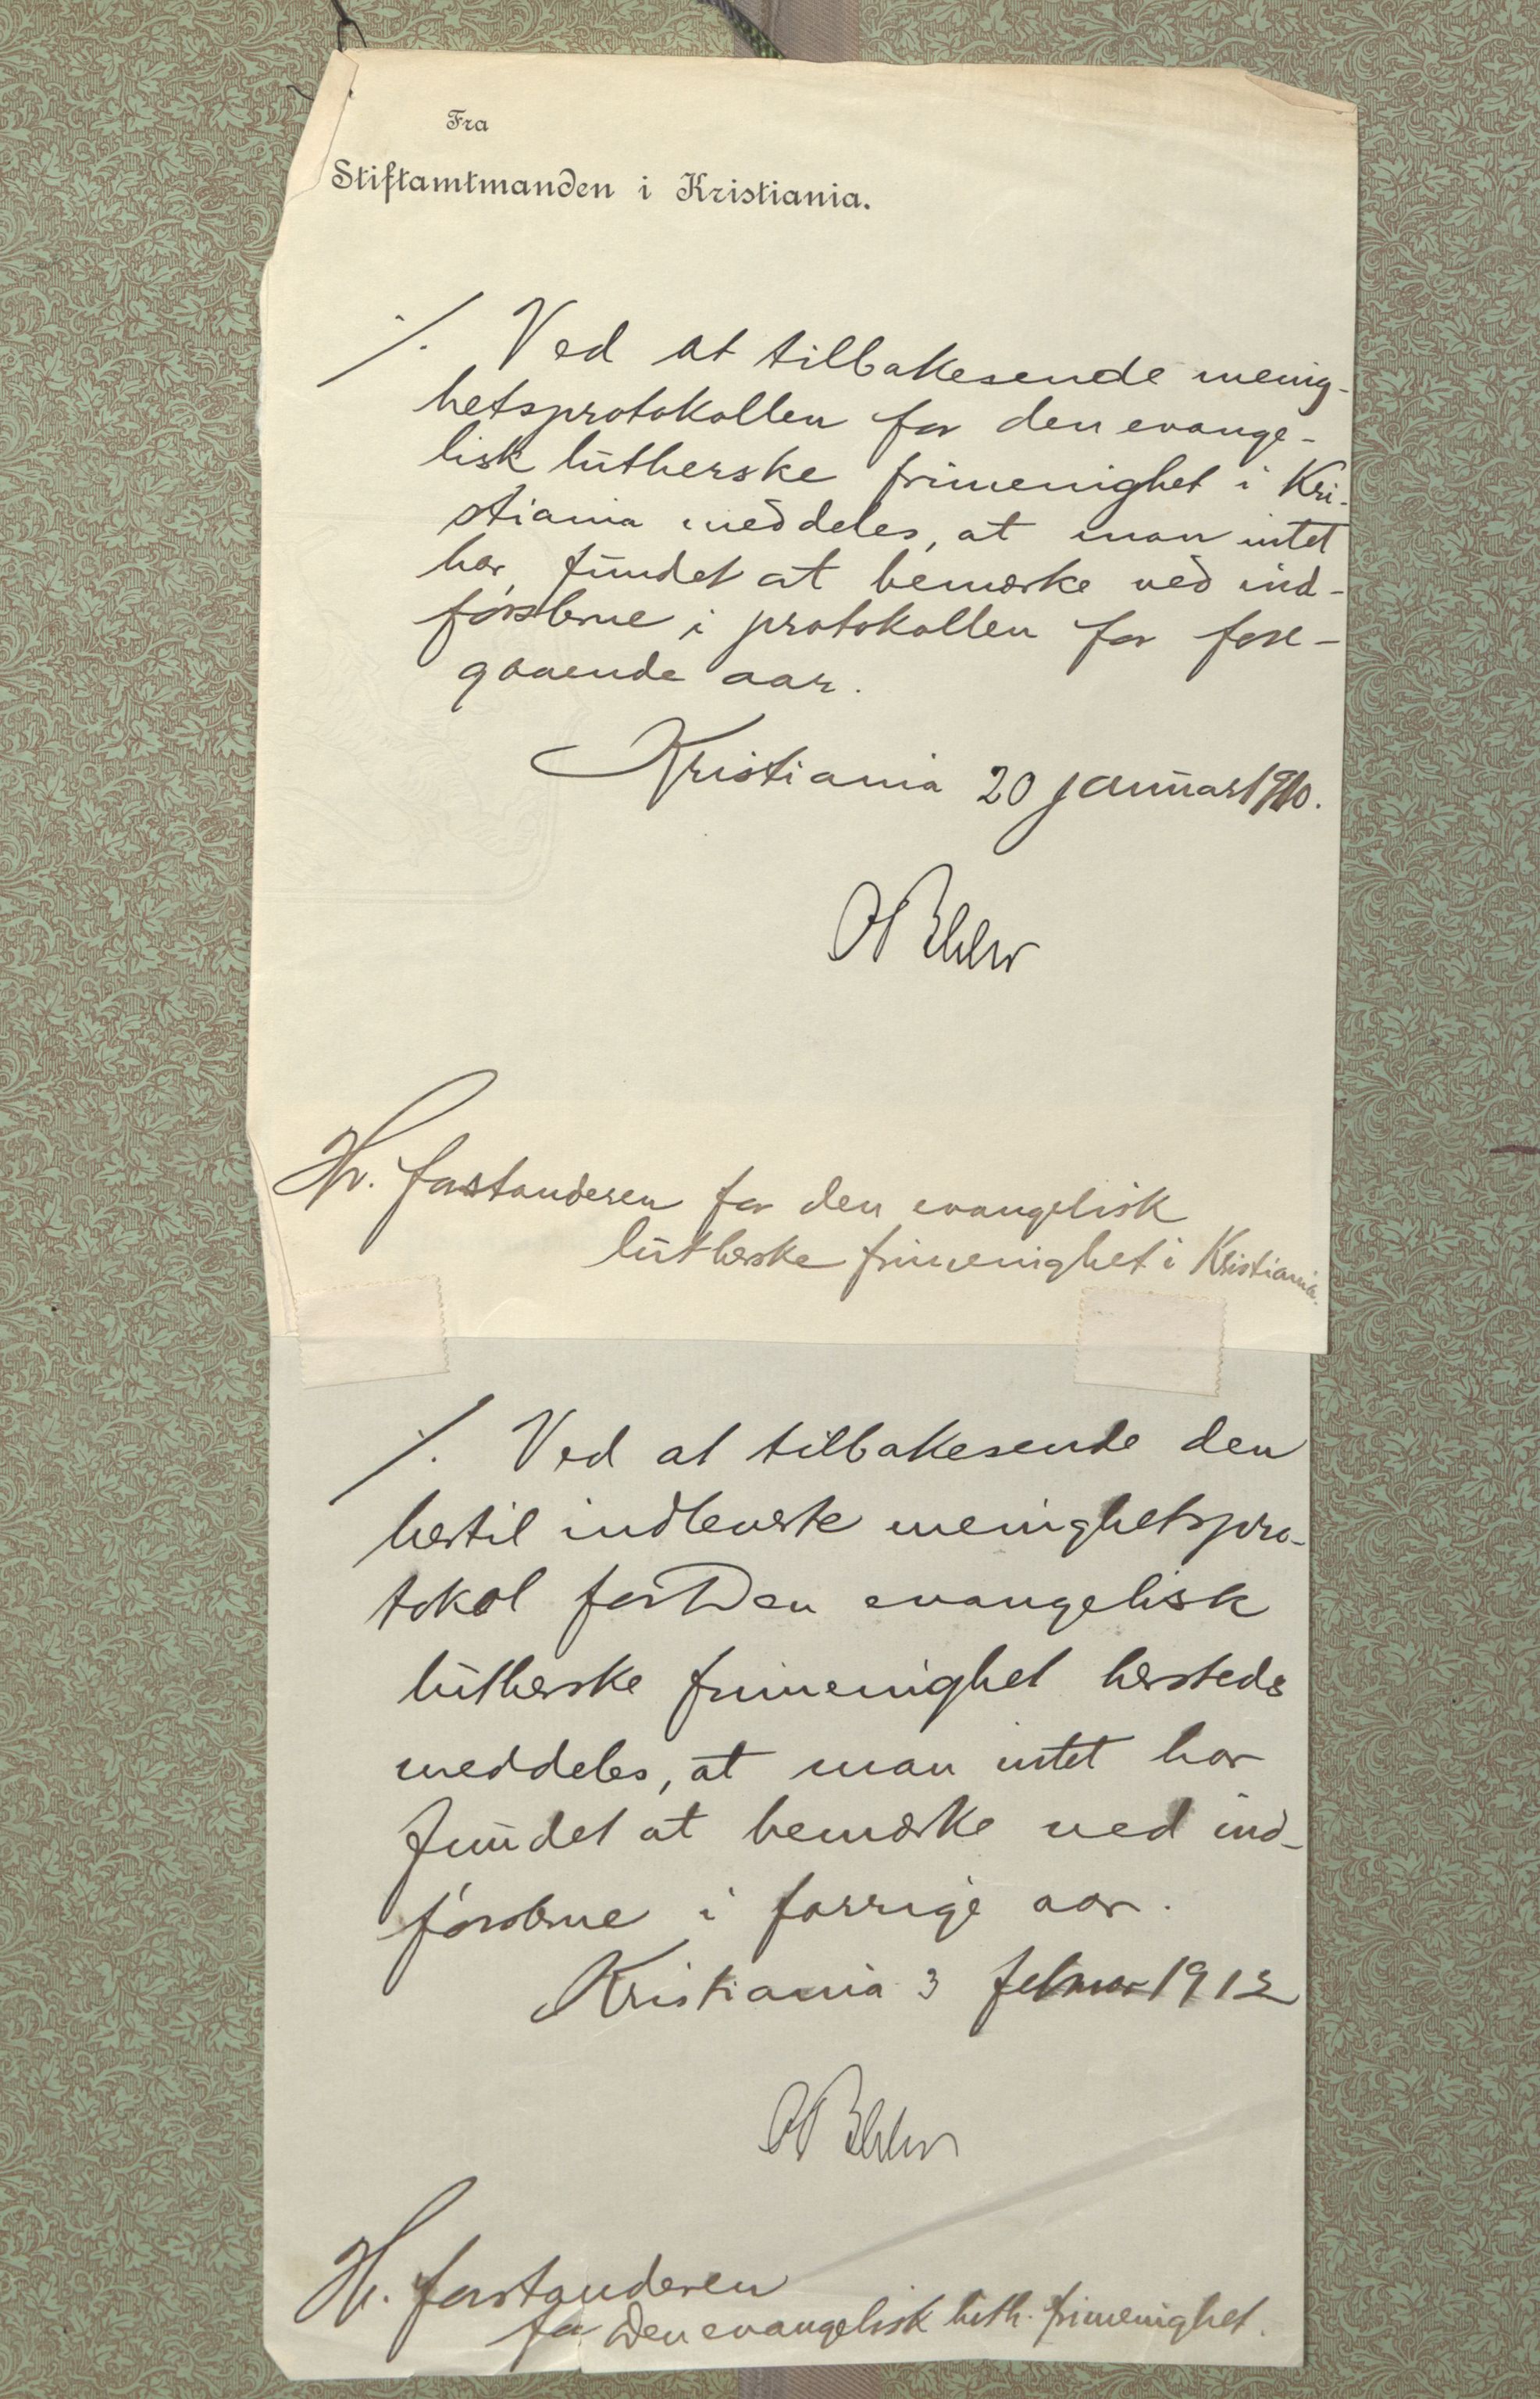 Fra
Stiftamtmanden i Kristiania.
⁒ Ved at tilbakesende menig-
hetsprotokollen for den evange-
lisk lutherske frimenighet i Kri-
stiania meddeles, at man intet
har fundet at bemærke ved ind-
førslerne i protokollen for fore-
gaaende aar.
Kristiania 20 januar 1910.
Hr. forstanderen for den evangelisk
lutherske frimenighet i Kristiania.
⁒ Ved at tilbakesende den
hertil indleverte menighetspro-
tokol for Den evangelisk
lutherske frimenighet hersteds
meddeles, at man intet har
fundet at bemærke ved ind-
førslerne i forrige aar.
Kristiania 3 februar 1912
Hr. forstanderen
for Den evangelisk luth. frimenighet.